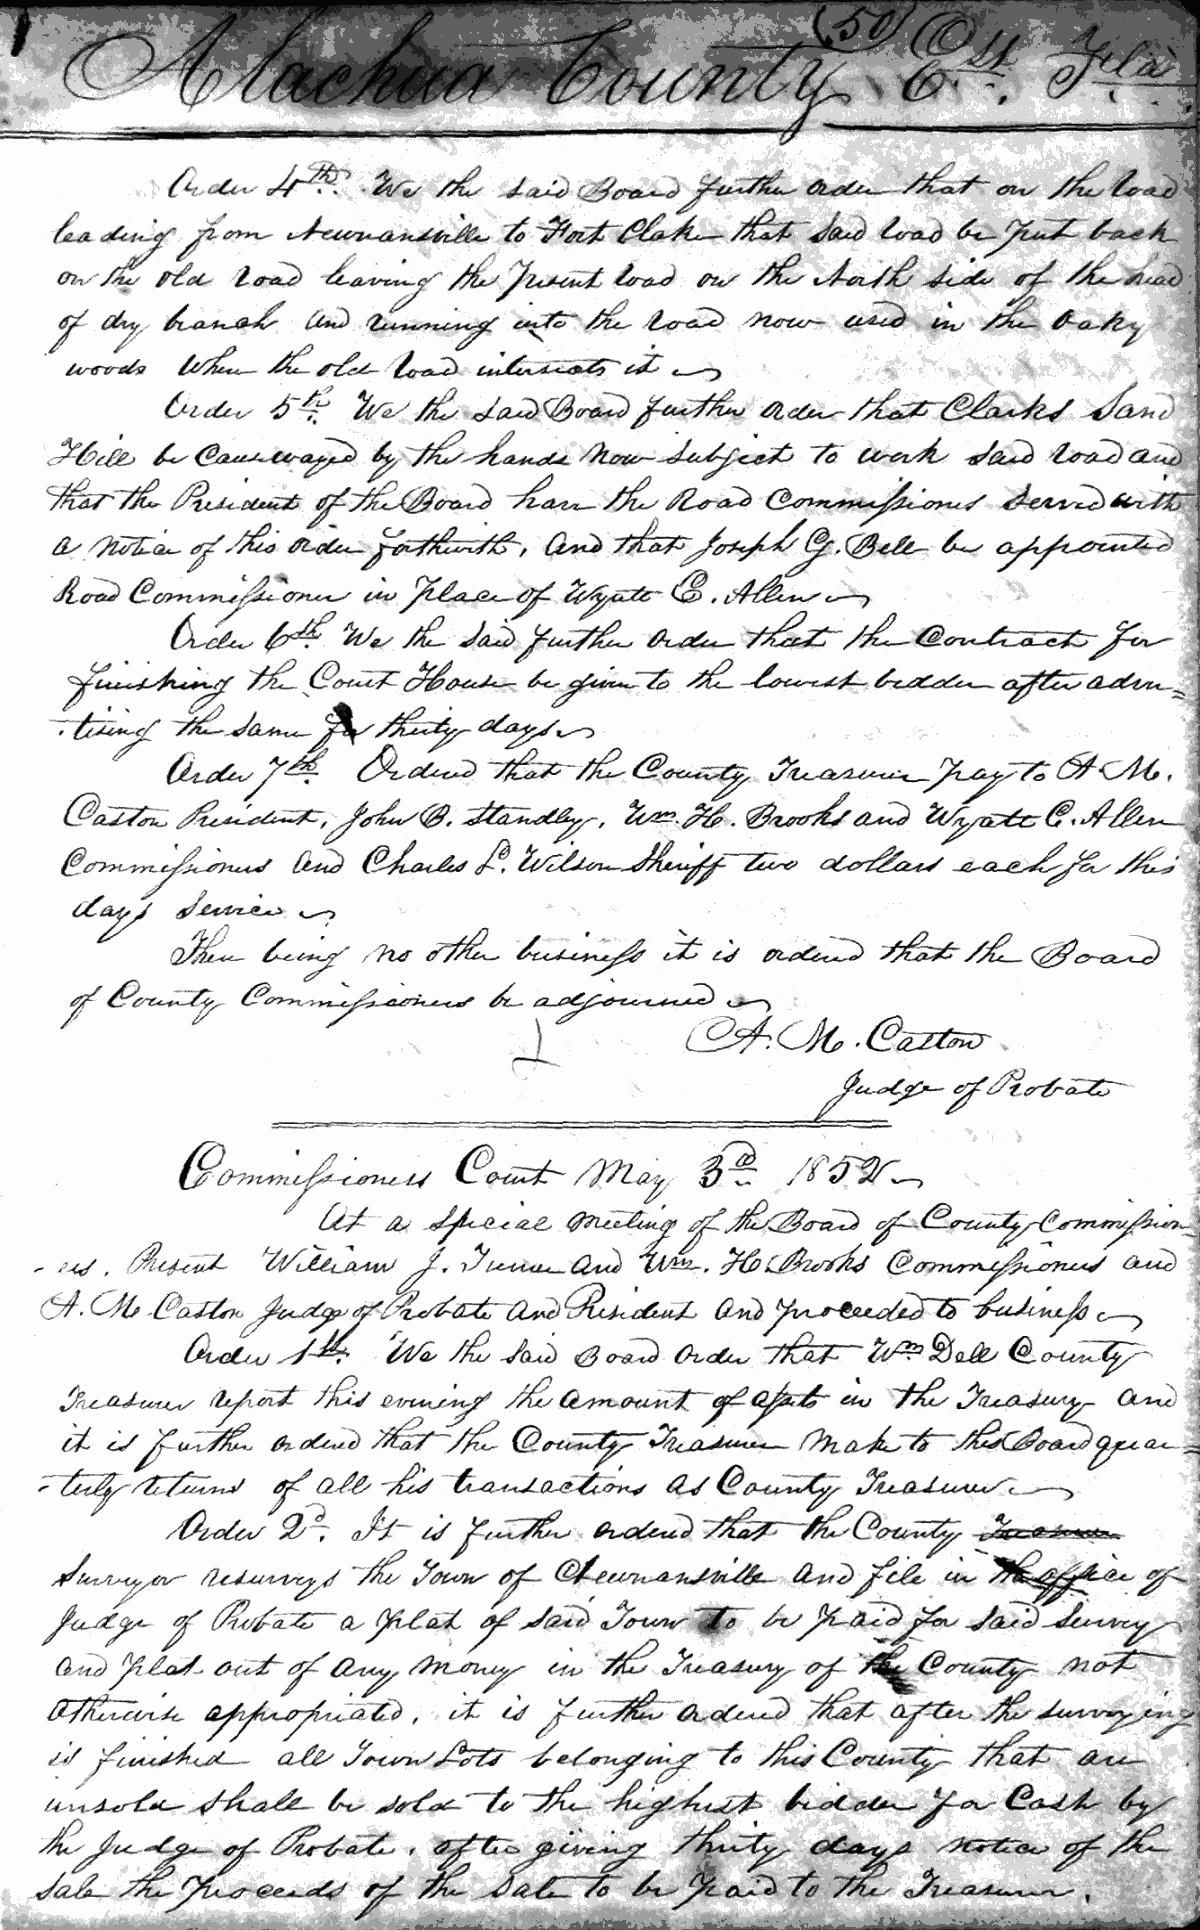 (50)
Alachua County Ct. Fla.
Order 4th. We the said Board further order that on the road
leading from Newnansville to Fort Clake that said road be put back
on the old road leaving the present road on the North side of the head
of dry branch and running into the road now used in the Oaky
woods where the old road intersects it
Order 5th. We the said Board further order that Clarks Sand
Hill be Causewayed by the hands now subject to work said road and
that the President of the Board have the Road Commissioners served with
a notice of this order forthwith, and that Joseph G. Bell be appointed
Road Commissioner in place of Wyatt C. Allen
Order 6th We the said further order that the Contract for
finishing the Court House be given to the lowest bidder after adver=
-tising the same for thirty days
Order 7th. Ordered that the County Treasurer pay to A. M.
Caston President, John B. Standley, Wm. H. Brooks and Wyatt C. Allen
Commissioners and Charles L. Wilson Sheriff two dollars each for this
days service
There being no other business it is ordered that the Board
of County Commissioners be adjourned
A. M. Caston
Judge of Probate
Commissioners Court May 3d. 1852
At a special meeting of the Board of County Commission
-ers. Present William J. Turner and Wm. H. Brooks Commissioners and
A. M. Caston Judge of Probate and President and proceeded to business
Order 1st. We the said Board order that Wm Dell County
Treasurer report this evening the amount of assets in the Treasury and
it is further ordered that the County Treasurer make to this Board quar=
-terly returns of all his transactions as County Treasurer
Order 2d. It is further ordered that the County Treasurer
Surveyor resurveys the Town of Newnansville and file in the office of
Judge of Probate a plat of said Town to be paid for said survey
and plat out of any money in the Treasury of the County not
otherwise appropriated, it is further ordered that after the surveying
is finished all Town Lots belonging to this County that are
unsold shall be sold to the highest bidder for Cash by
the Judge of Probate, after giving thirty days notice of the
sale the proceeds of the sale to be paid to the Treasurer.